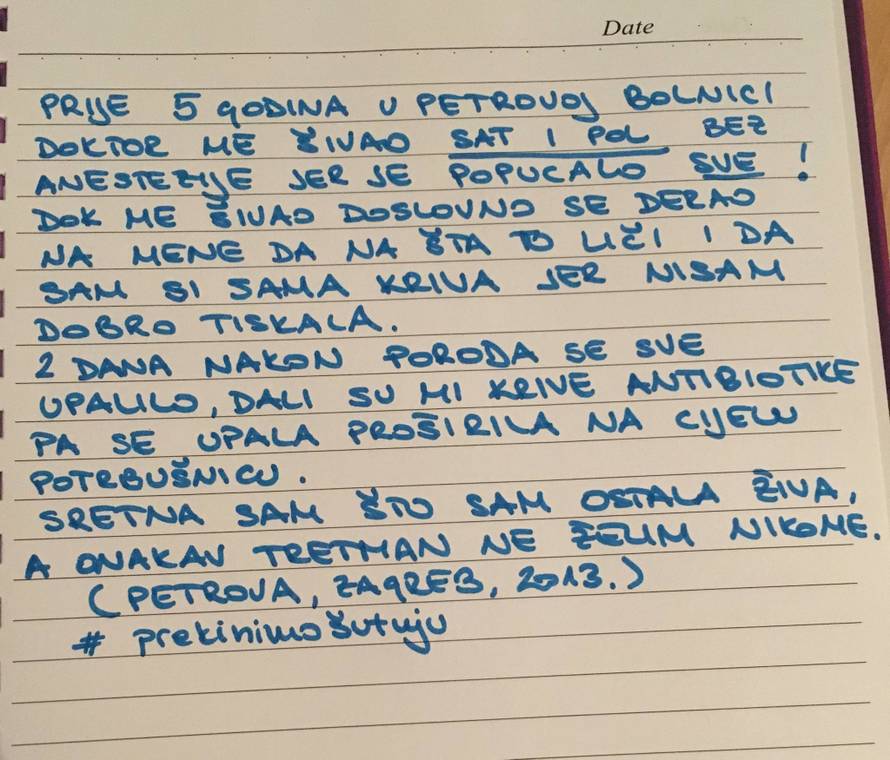 Date
PRIJE 5 GODINA U PETROVOJ BOLNICI
DOKTOR ME ŠIVAO SAT I POL BEZ
ANESTEZIJE JER JE POPUCALO SVE!
DOK ME ŠIVAO DOSLOVNO SE DERAO
NA MENE DA NA ŠTA TO LIČI I DA
SAM SI SAMA KRIVA JER NISAM
DOBRO TISKALA.
2 DANA NAKON POROĐA SE SVE
UPALILO, DALI SU MI KRIVE ANTIBIOTIKE
PA SE UPALA PROŠIRILA NA CIJELU
POTRBUŠNICU.
SRETNA SAM ŠTO SAM OSTALA ŽIVA,
A ONAKAV TRETMAN NE ŽELIM NIKOME.
(PETROVA, ZAGREB, 2013.)
# prekinimošutnju